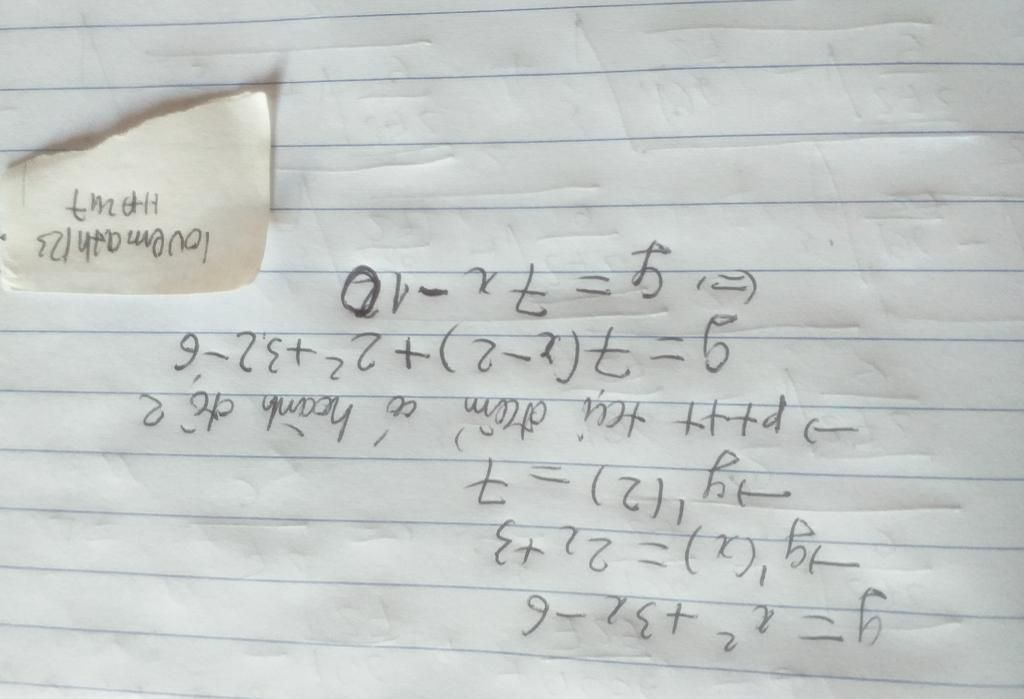 y = x² + 3x - 6
→ y'(x) = 2x + 3
→ y'(2) = 7
→ pttt tại điểm có hoành độ 2
y = 7(x - 2) + 2² + 3.2 - 6
(=) y = 7x - 10
lovemath123
HP247